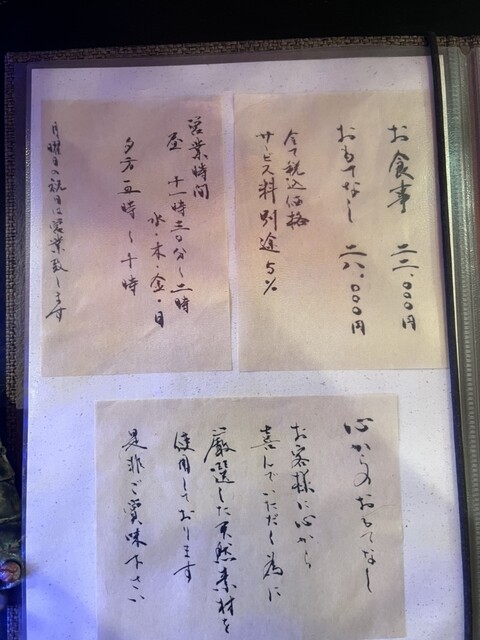 お食事 二二.〇〇〇円
おもてなし 二八.〇〇〇円
全て税込価格
サービス料別途5%
営業時間
昼 十一時三〇分〜二時
水・木・金・日
夕方五時〜十時
月曜日の祝日は営業致します
心からのおもてなし
お客様に心から
喜んでいただく為に
厳選した天然素材を
使用しております
是非ご賞味下さい